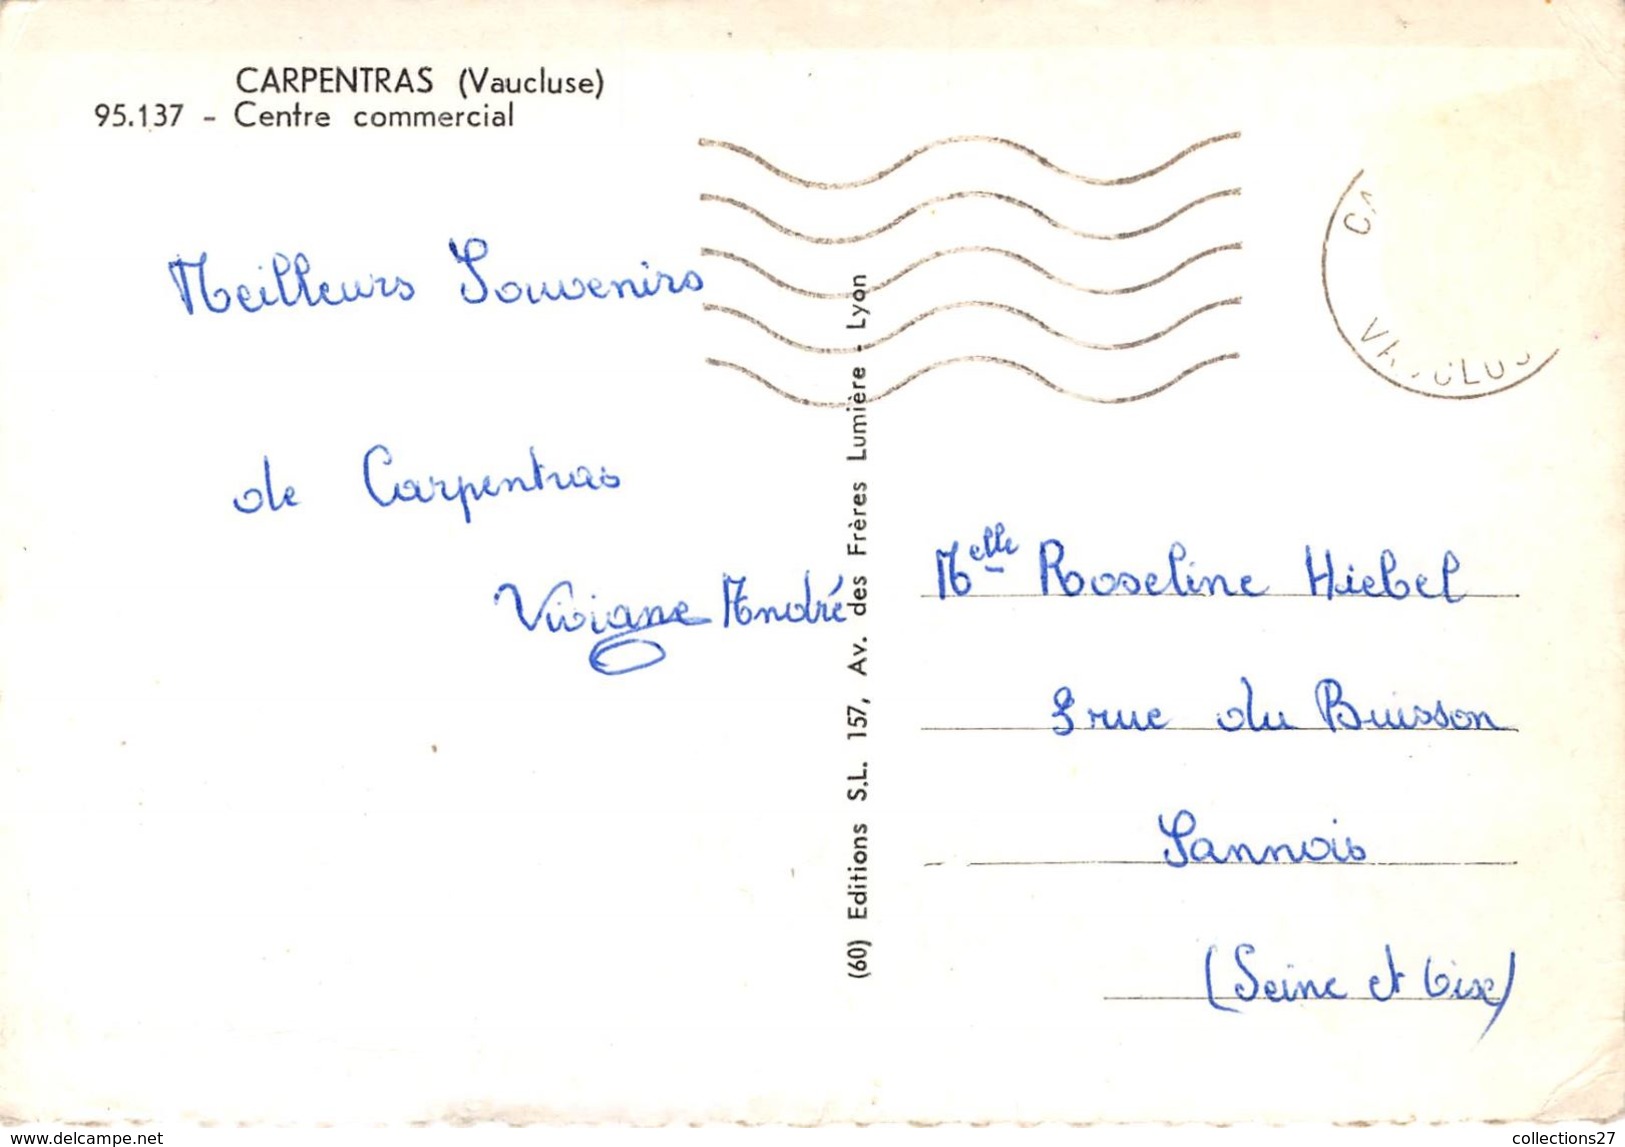 CARPENTRAS (Vaucluse)
95.137 - Centre commercial
Meilleurs Souvenirs
de Carpentras
Viviane André
(60) Editions S.L. 157, Av. des Frères Lumière - Lyon
VAUCLUS
Melle Roseline Hiebel
rue du Buisson
Sannois
(Seine et Oise)
www.delcampe.net
collections27